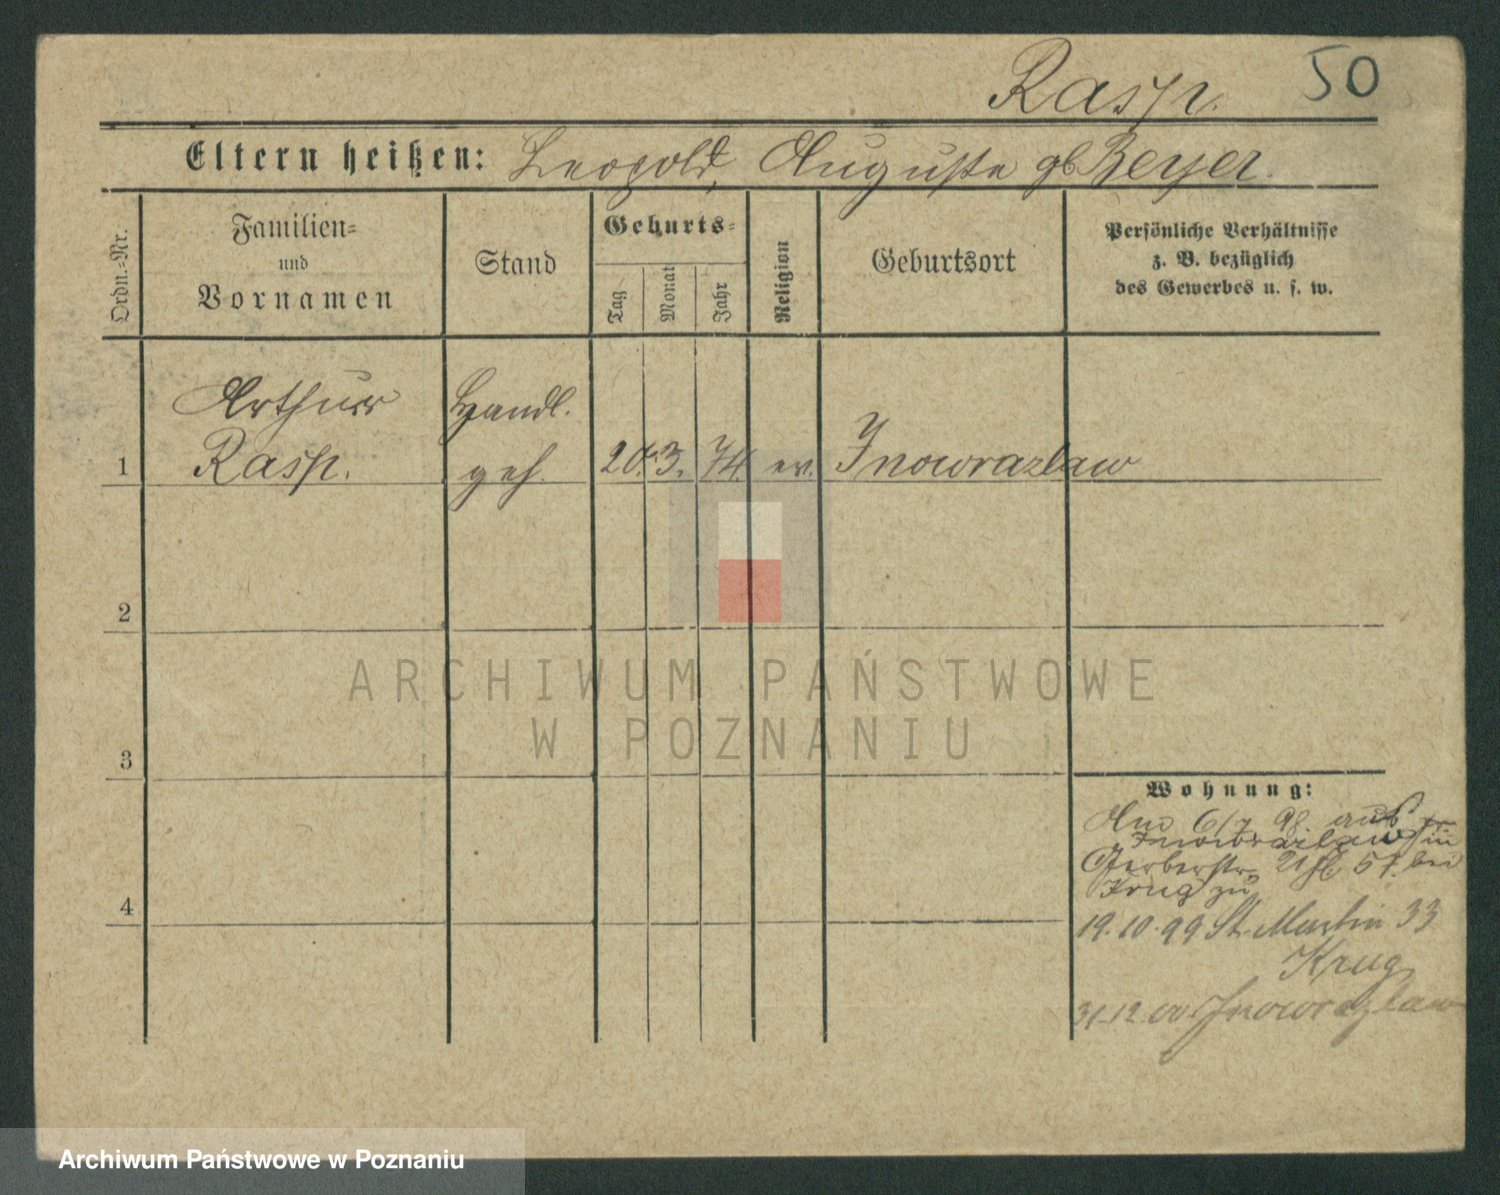 Rasp. 50
Eltern heißen: Leopold, Auguste gb Beyer.
Ordn.-Nr.
Familien-
und
Vornamen
Stand
Geburts-
Tag
Monat
Jahr
Religion
Geburtsort
Persönliche Verhältnisse
z. B. bezüglich
des Gewerbes u. s. w.
Arthur Handl.
1 Rasp. geh. 20. 3. 74. ev. Inowrazlaw
2
ARCHIWUM PAŃSTWOWE
W POZNANIU
3
Wohnung:
6/7 98 aus
Inowrazlaw in
Gerberstr. 21 bei
Krug zu
4
19.10.99 St. Martin 33
Krug
31.12.00 Inowrazlaw
Archiwum Państwowe w Poznaniu